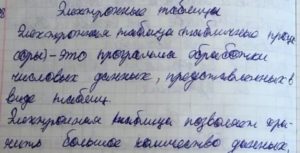 Электронные таблицы
Электронная таблица (табличные проце
соры) - это программа обработки
числовых данных, представленных в
виде таблиц.
Электронная таблица позволяет хра-
нить большое количество данных,